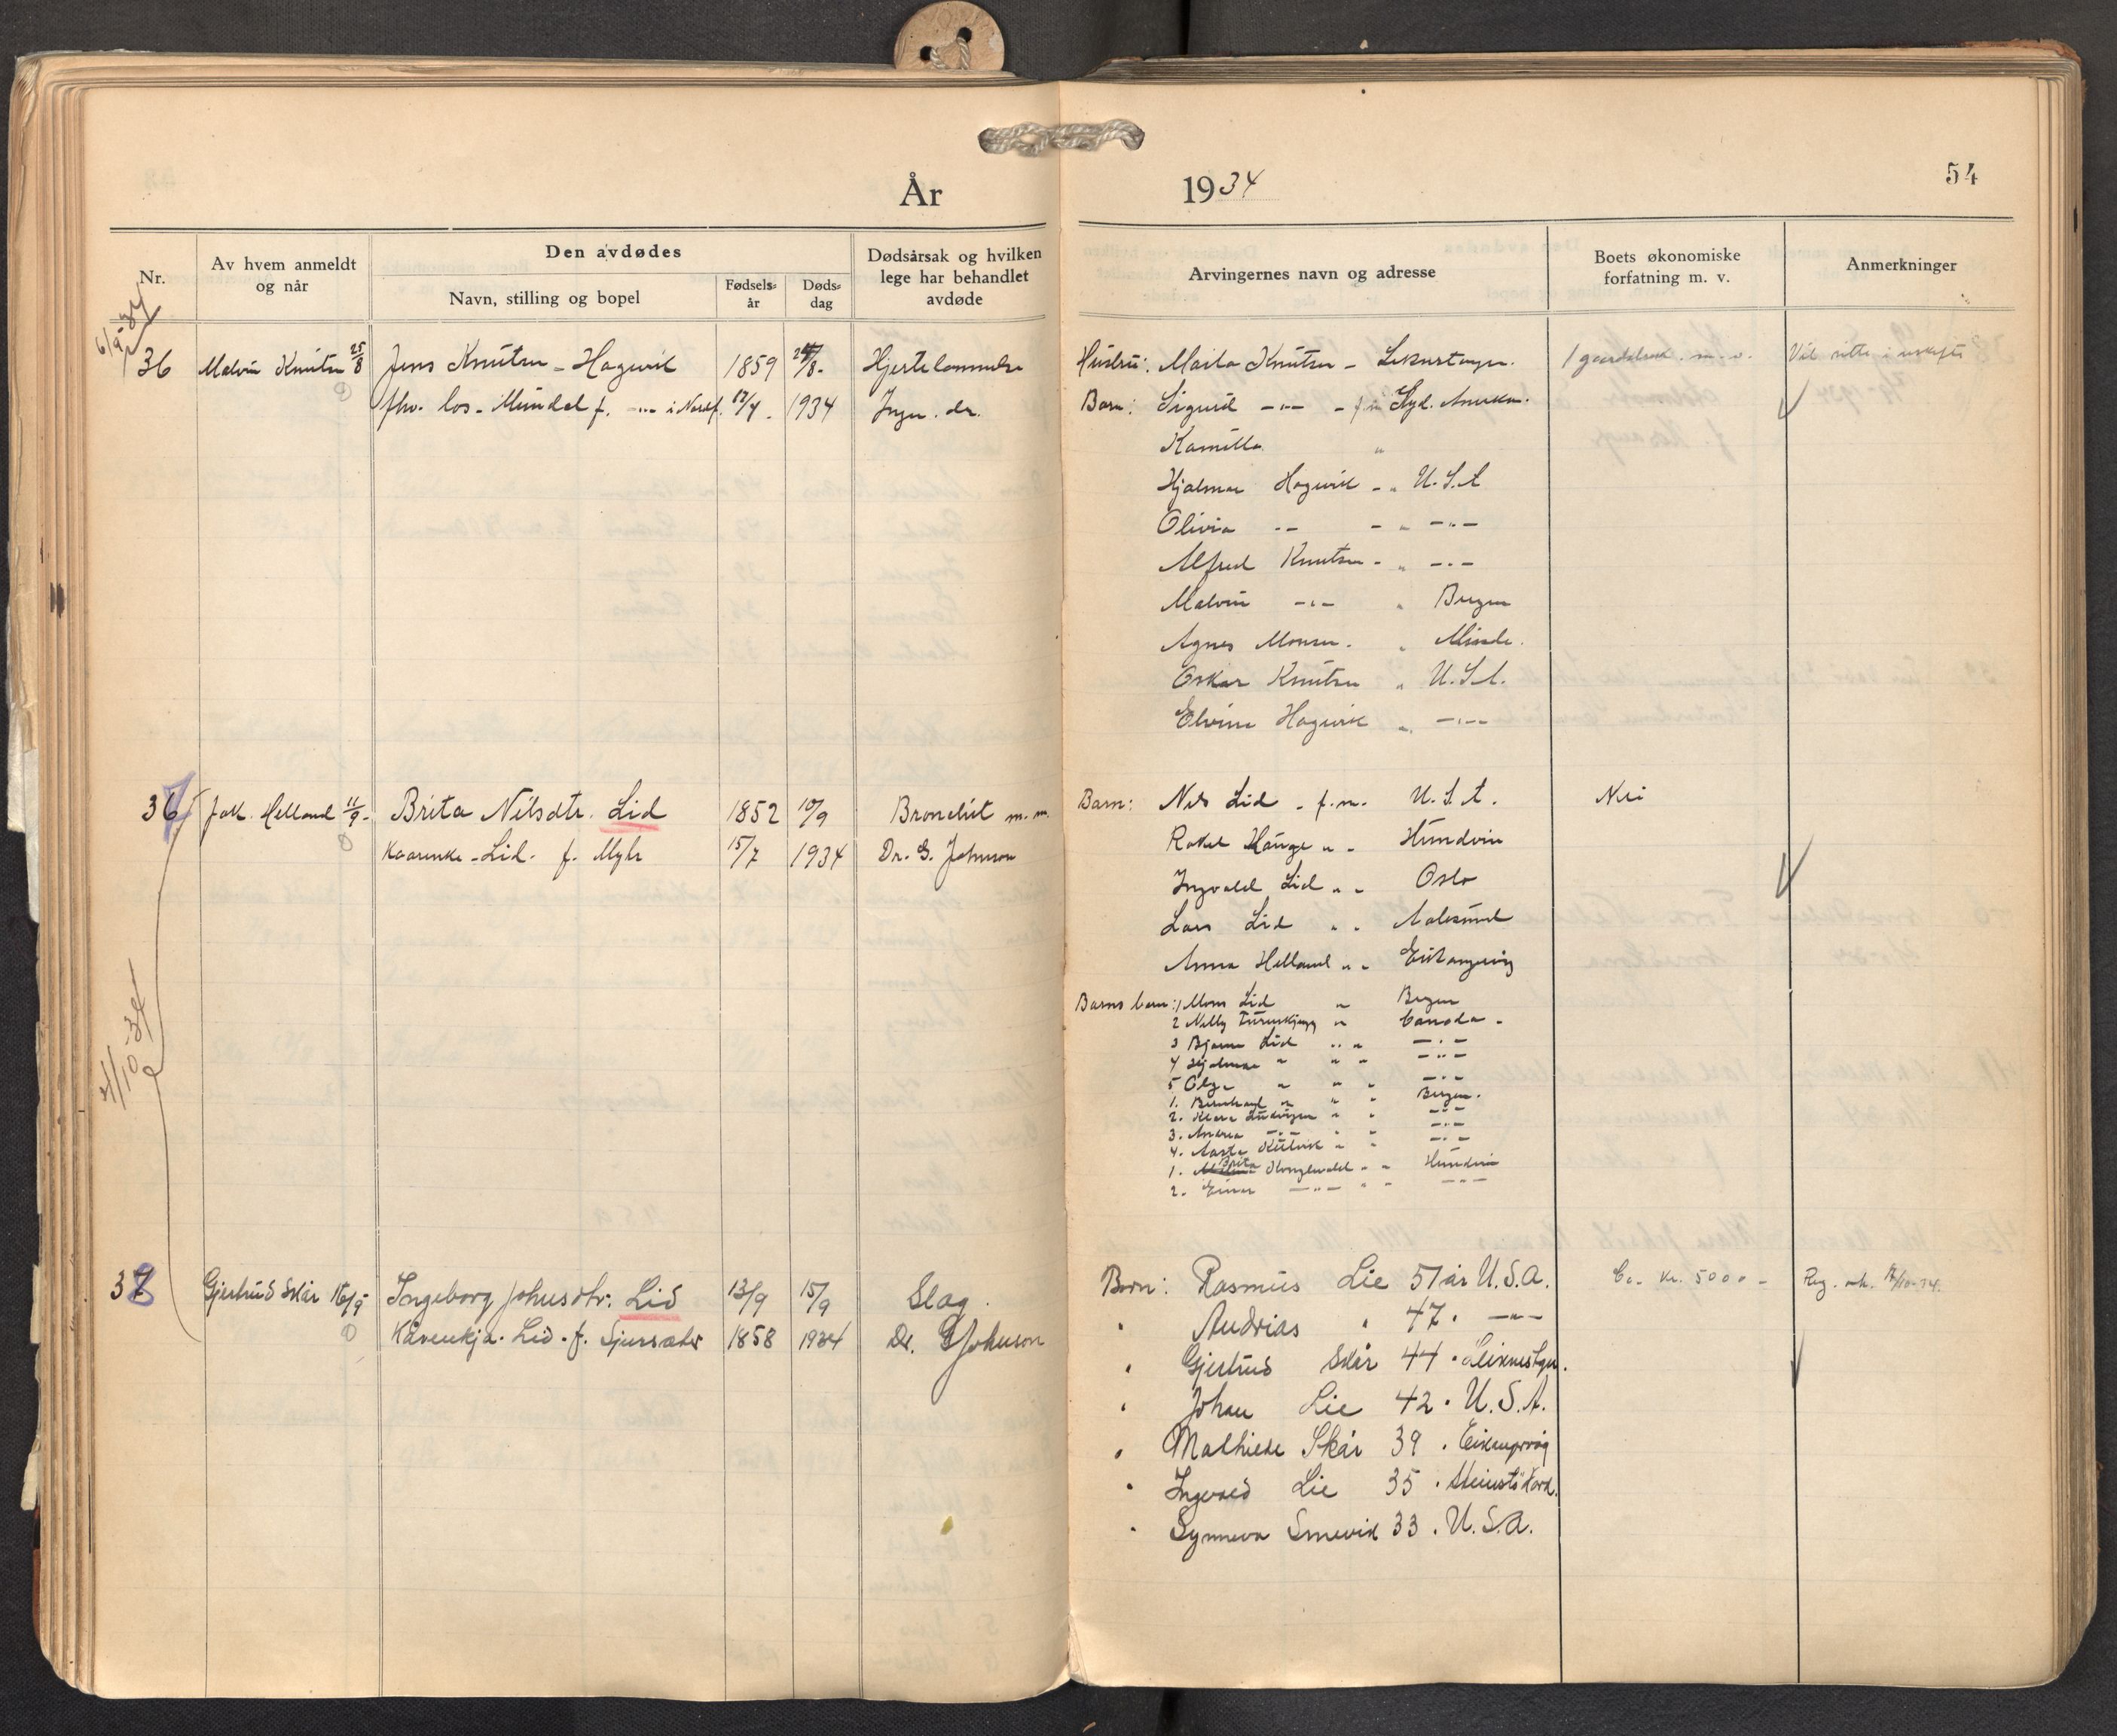 År
1934
54
Nr.
Av hvem anmeldt
og når
Den avdødes
Navn, stilling og bopel
Fødsels-
år
Døds-
dag
Dødsårsak og hvilken
lege har behandlet
avdøde
Arvingernes navn og adresse
Boets økonomiske
forfatning m. v.
Anmerkninger
6/9-34
36 Malvin Knutsen 25/8 Jens Knutsen - Hagevik 1859 24/8- Hjertelammelse
fhv. los - f. -"- i Nordf. 12/4. 1934 dr.
Hustru: Marta Knutsen -
1 gaardsbruk m. v.
Vil sitte i uskifte
Barn: Sigurd -"- - f.n. Syd. Amerika.
Kamilla "
Hjalmar Hagevik - " U.S.A
Olivia -- - " -"-
Alfred Knutsen - " -"-
Malvin -"- " Bergen
Agnes Monsen. " Minde.
Oskar Knutsen " U.S.A.
Elvina Hagevik " -"-
37 Jak. Helland 11/9- Brita Nilsdtr. Lid 1852 10/9 Bronchit m. m.
Kaarenke - Lid. f. Myhr 15/7 1934 Dr. G. Johnson
Barn: Nils Lid - f.n. U.S.A.
Nei
Rakel Hauge " - Hundvin
Ingvald Lid " - Oslo
Lars Lid " " Aalesund
Anna Helland " - Eikangervåg
4/10-34
Barns barn: 1 Mons Lid " Bergen
2 Nelly " Canada -
3 Bjarne Lid " " -"-
4 Hjalmar " " " -"-
5 Olga " " " -"-
1. Bernhard " " " Bergen.
2. Klara " " -"-
3. Andrea -"- " " -"-
4. " " -"-
1. Brita " - Hundvin
2. Einar -"- " " -"-
38 Gjertrud Skår 16/9 Ingeborg Johusdtr. Lid 13/9 15/9 Slag.
Kårenkja. Lid. f. Sjursæter 1858 1934 Dr. G Johnson
Born: Rasmus Lie 51 år U.S.A.
Ca. kr. 5000 -
" Andrias " 47. -"-
" Gjertrud Skår 44.
" Johan Lie 42. U.S.A.
" Mathilde Skår 39. Eikangervåg
" Ingvald Lie 35.
" Synneva Smevik 33. U.S.A.